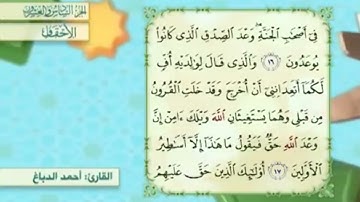 الجزء السادس والعشرون
الأحقاف
فِىٓ أَصْحَـٰبِ ٱلْجَنَّةِ ۖ وَعْدَ ٱلصِّدْقِ ٱلَّذِى كَانُوا۟
يُوعَدُونَ ١٦ وَٱلَّذِى قَالَ لِوَٰلِدَيْهِ أُفٍّ
لَّكُمَآ أَتَعِدَانِنِىٓ أَنْ أُخْرَجَ وَقَدْ خَلَتِ ٱلْقُرُونُ
مِن قَبْلِى وَهُمَا يَسْتَغِيثَانِ ٱللَّهَ وَيْلَكَ ءَامِنْ إِنَّ
وَعْدَ ٱللَّهِ حَقٌّ فَيَقُولُ مَا هَـٰذَآ إِلَّآ أَسَـٰطِيرُ
ٱلْأَوَّلِينَ ١٧ أُو۟لَـٰٓئِكَ ٱلَّذِينَ حَقَّ عَلَيْهِمُ
القارئ: أحمد الدباغ